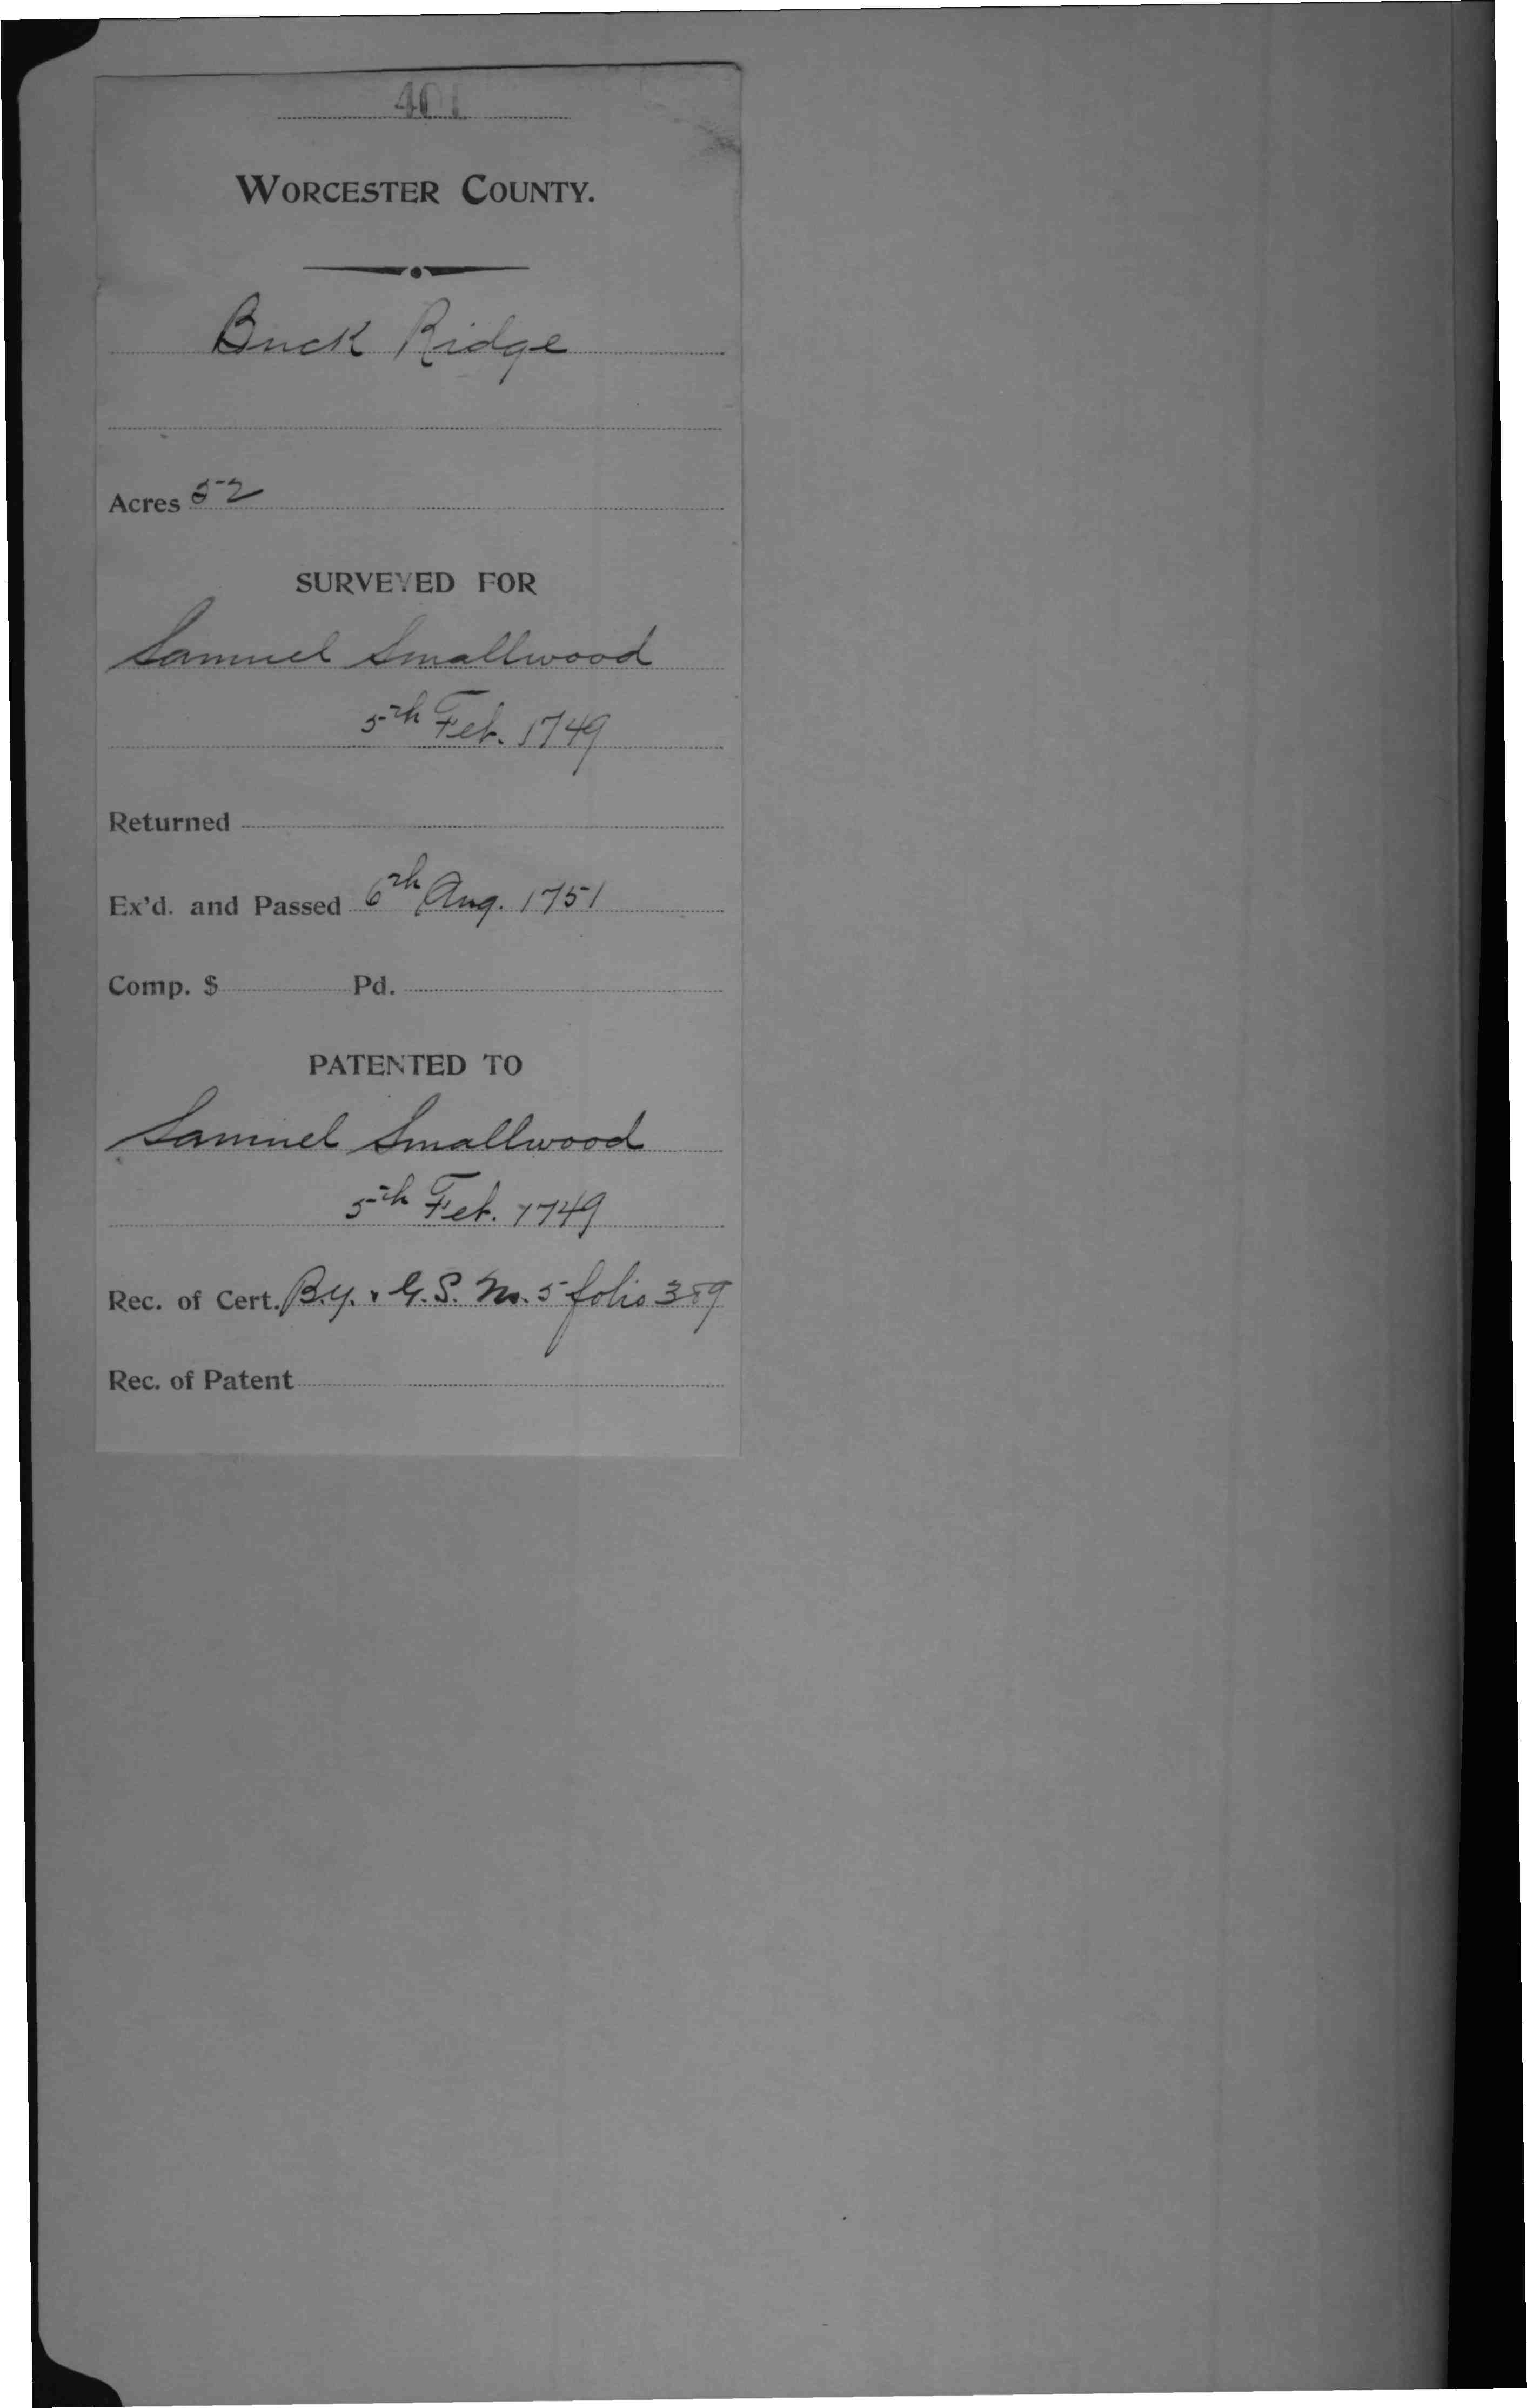 401
WORCESTER COUNTY.
Buck Ridge
Acres 52
SURVEYED FOR
Samuel Smallwood
5th Feb. 1749
Returned
Ex'd. and Passed 6th Aug. 1751
Comp. $ Pd.
PATENTED TO
Samuel Smallwood
5th Feb. 1749
Rec. of Cert. B.Y. & G.S. No. 5 folio 389
Rec. of Patent